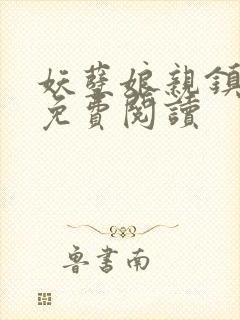 妖孽娘親鎮
免費閱讀
魯書南